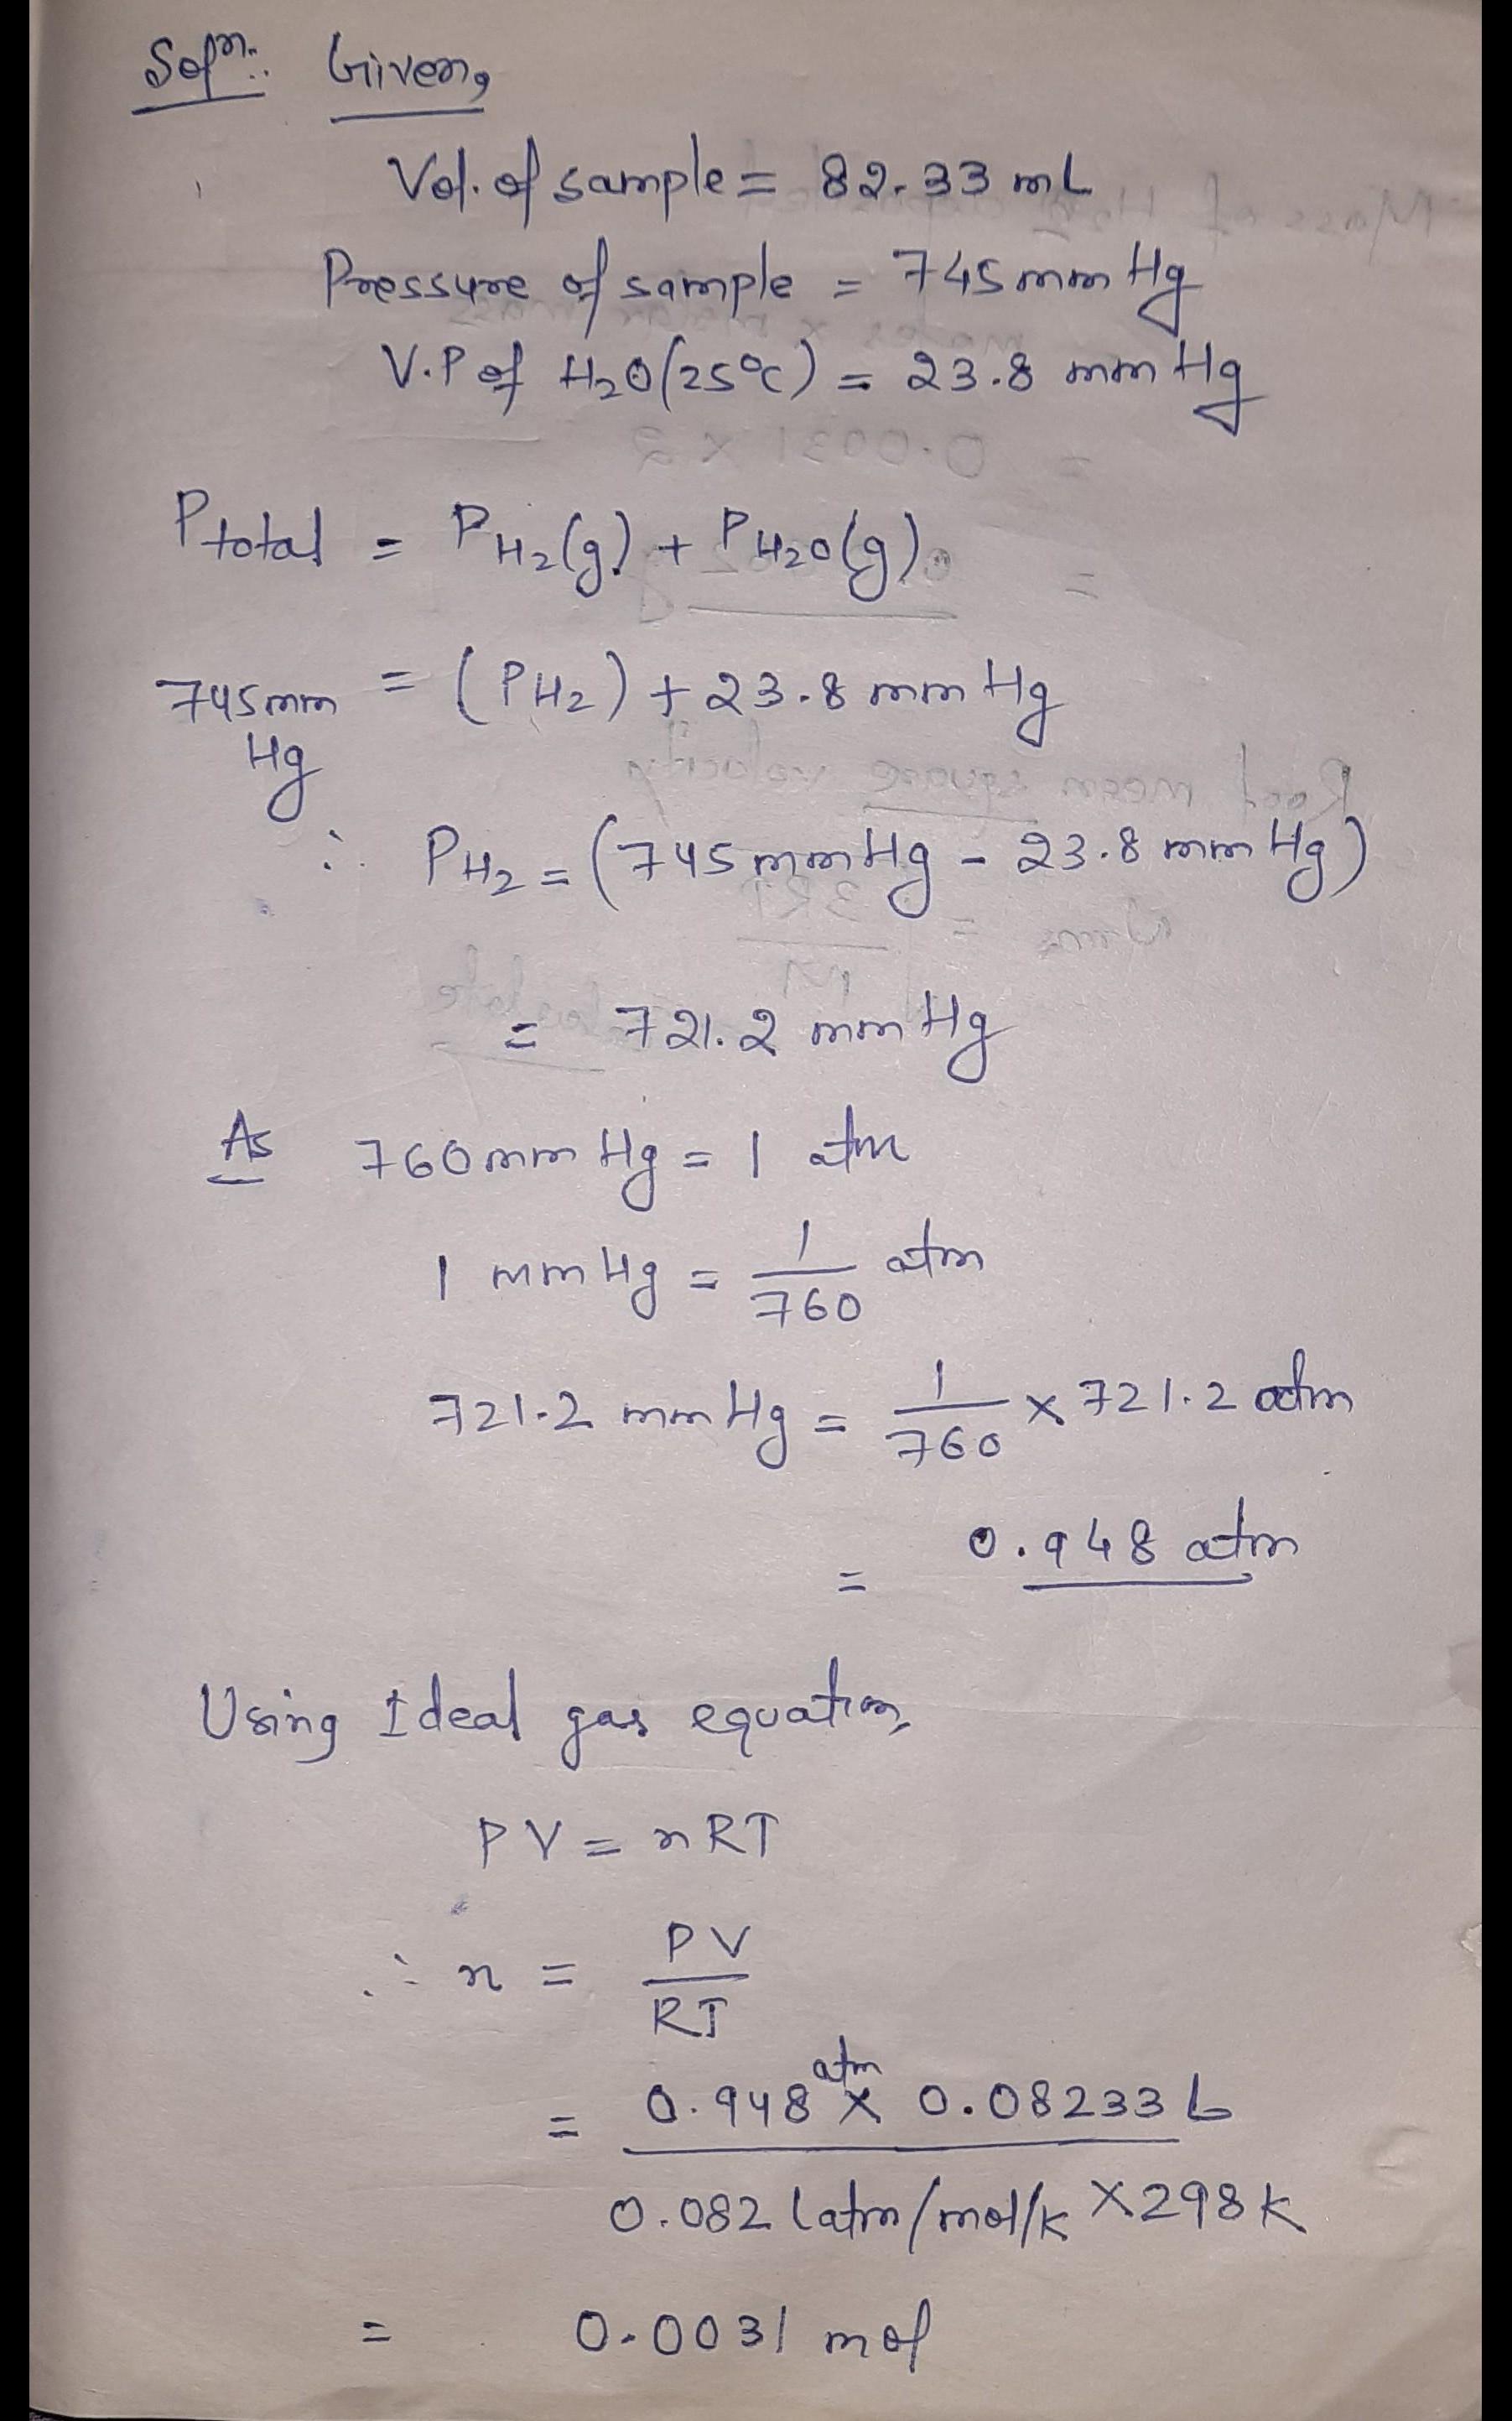 Solⁿ:. Given,
Vol. of sample = 82.33 mL
Pressure of sample = 745 mm Hg
V.P of H₂O (25°C) = 23.8 mm Hg
P total = P H₂(g) + P H₂O(g)
745 mm Hg = (P H₂) + 23.8 mm Hg
∴ P H₂ = (745 mm Hg - 23.8 mm Hg)
= 721.2 mm Hg
As 760 mm Hg = 1 atm
1 mm Hg = 1/760 atm
721.2 mm Hg = 1/760 × 721.2 atm
= 0.948 atm
Using Ideal gas equation,
PV = nRT
∴ n = PV/RT
= 0.948 atm × 0.08233 L
0.082 L atm/mol/K × 298 K
= 0.0031 mol